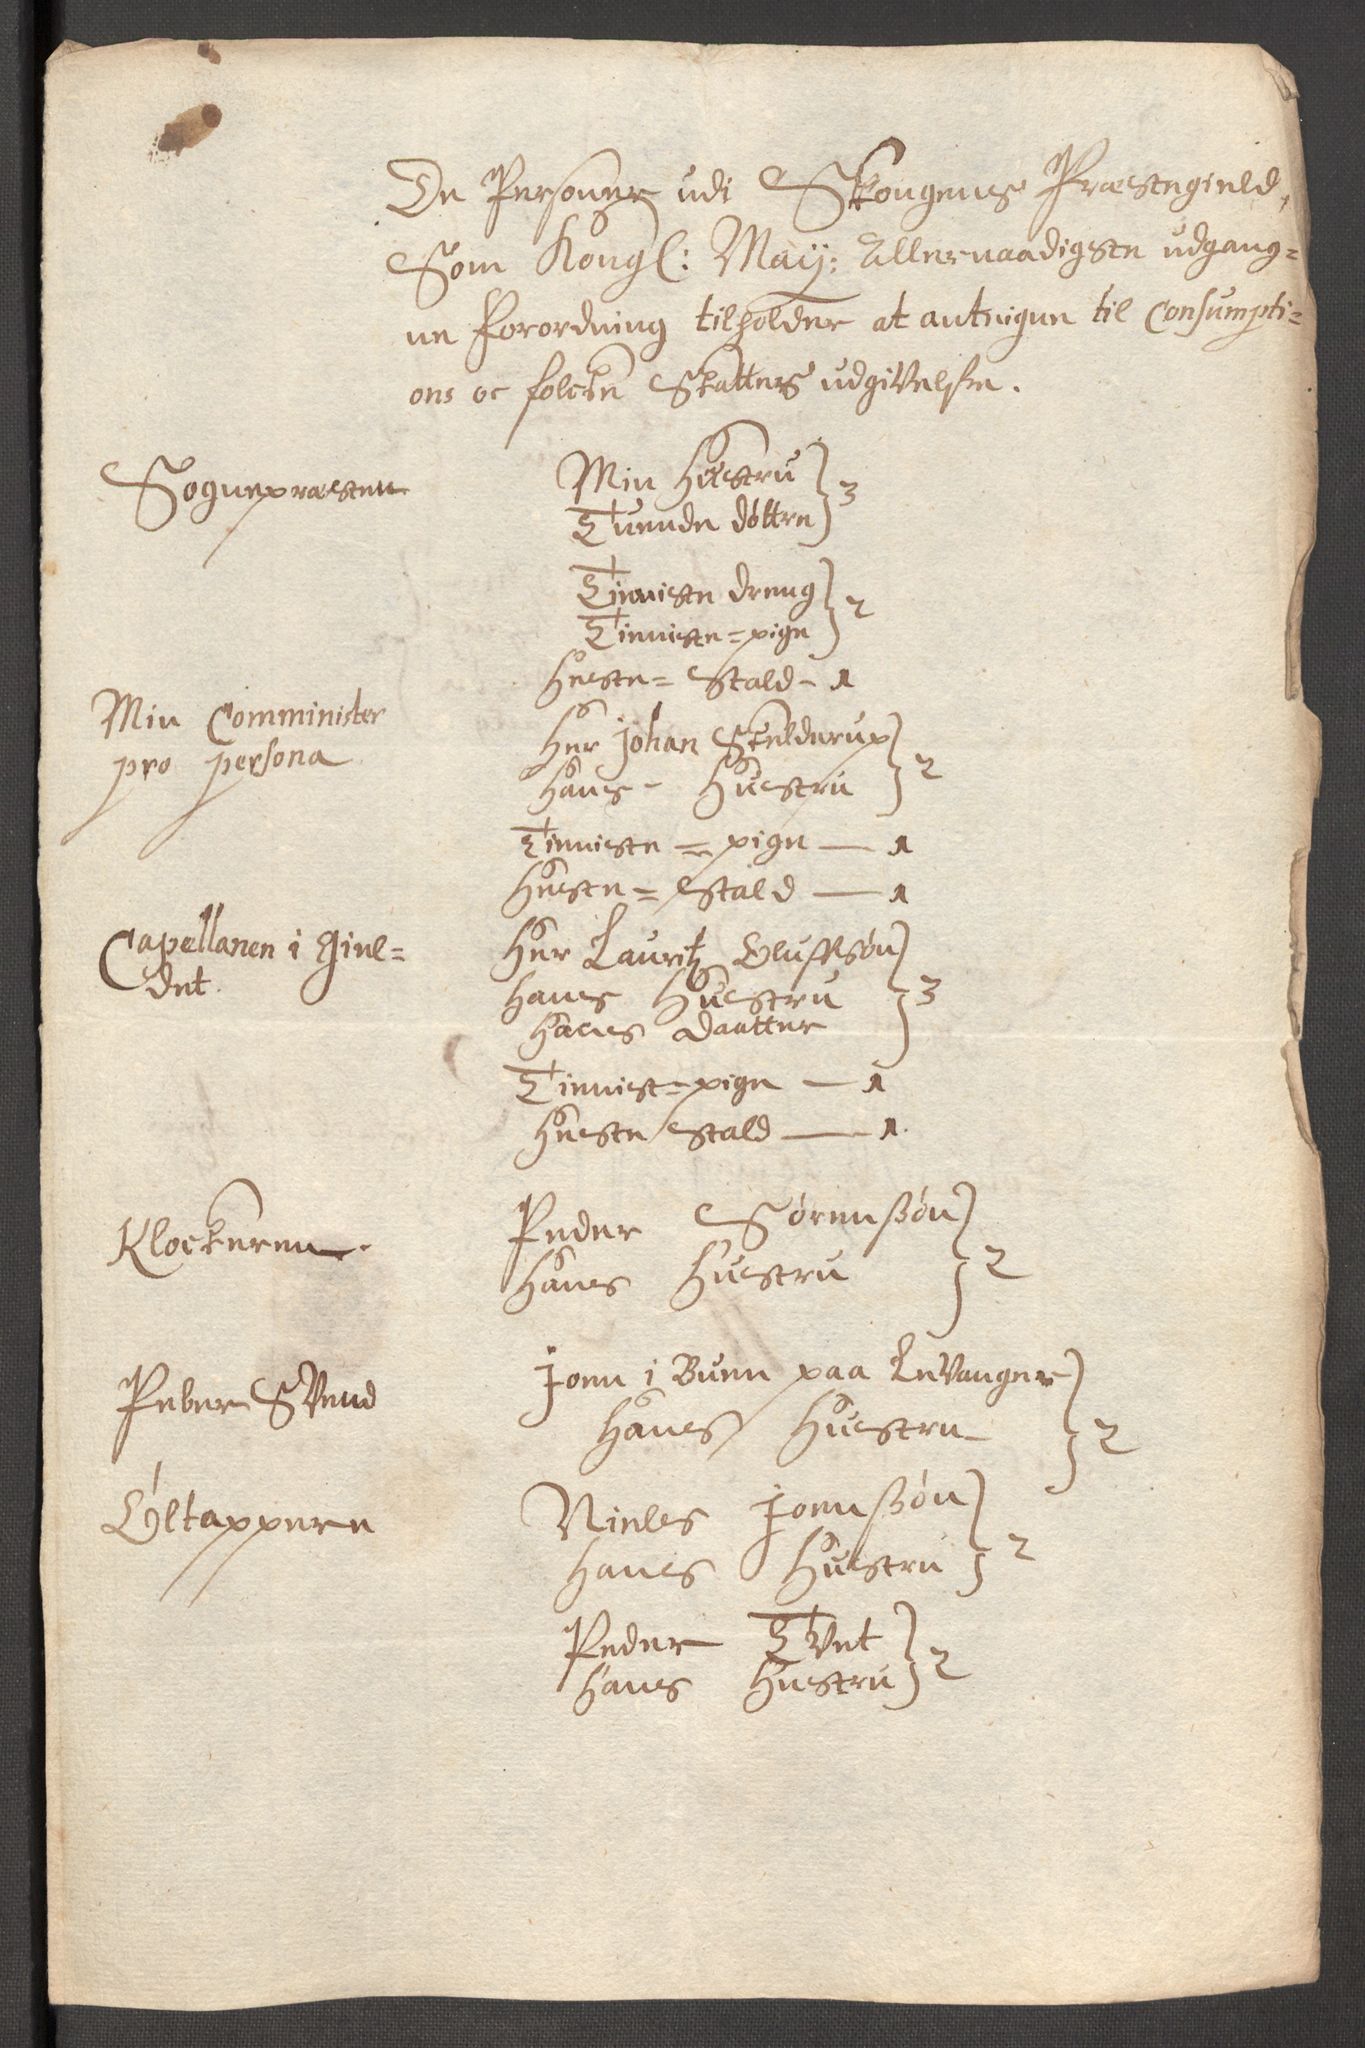 De Personer udi Skougnes Præstegield,
Som Kongl: Mayj: Allernaadigste udgang=
ne Forordning tilholder at anteigne til Consumpti=
ons oc folcke Skatters udgivelse.
Sognepræsten
Min Hustru } 3
Tuende døttre
Tieniste dreng } 2
Tieniste=pige
Heste= Stald - 1
Min Comminister
pro persona
Her Johan Skelderup } 2
Hans - Hustru
Tieniste = pige — 1
Heste = Stald — 1
Capellanen i Giel=
det.
Her Lauritz Oluffsøn } 3
Hans Hustru
Hans Daatter
Tienist=pige — 1
Heste Stald — 1.
Klockeren.
Peder Sørenssøn } 2
Hans Hustru
Peber Svend
Joen i Buen paa Levanger } 2
Hans Hustru
Øltappere
Niels Joenssøn } 2
Hans Hustru
Peder Tvet } 2
Hans Hustru